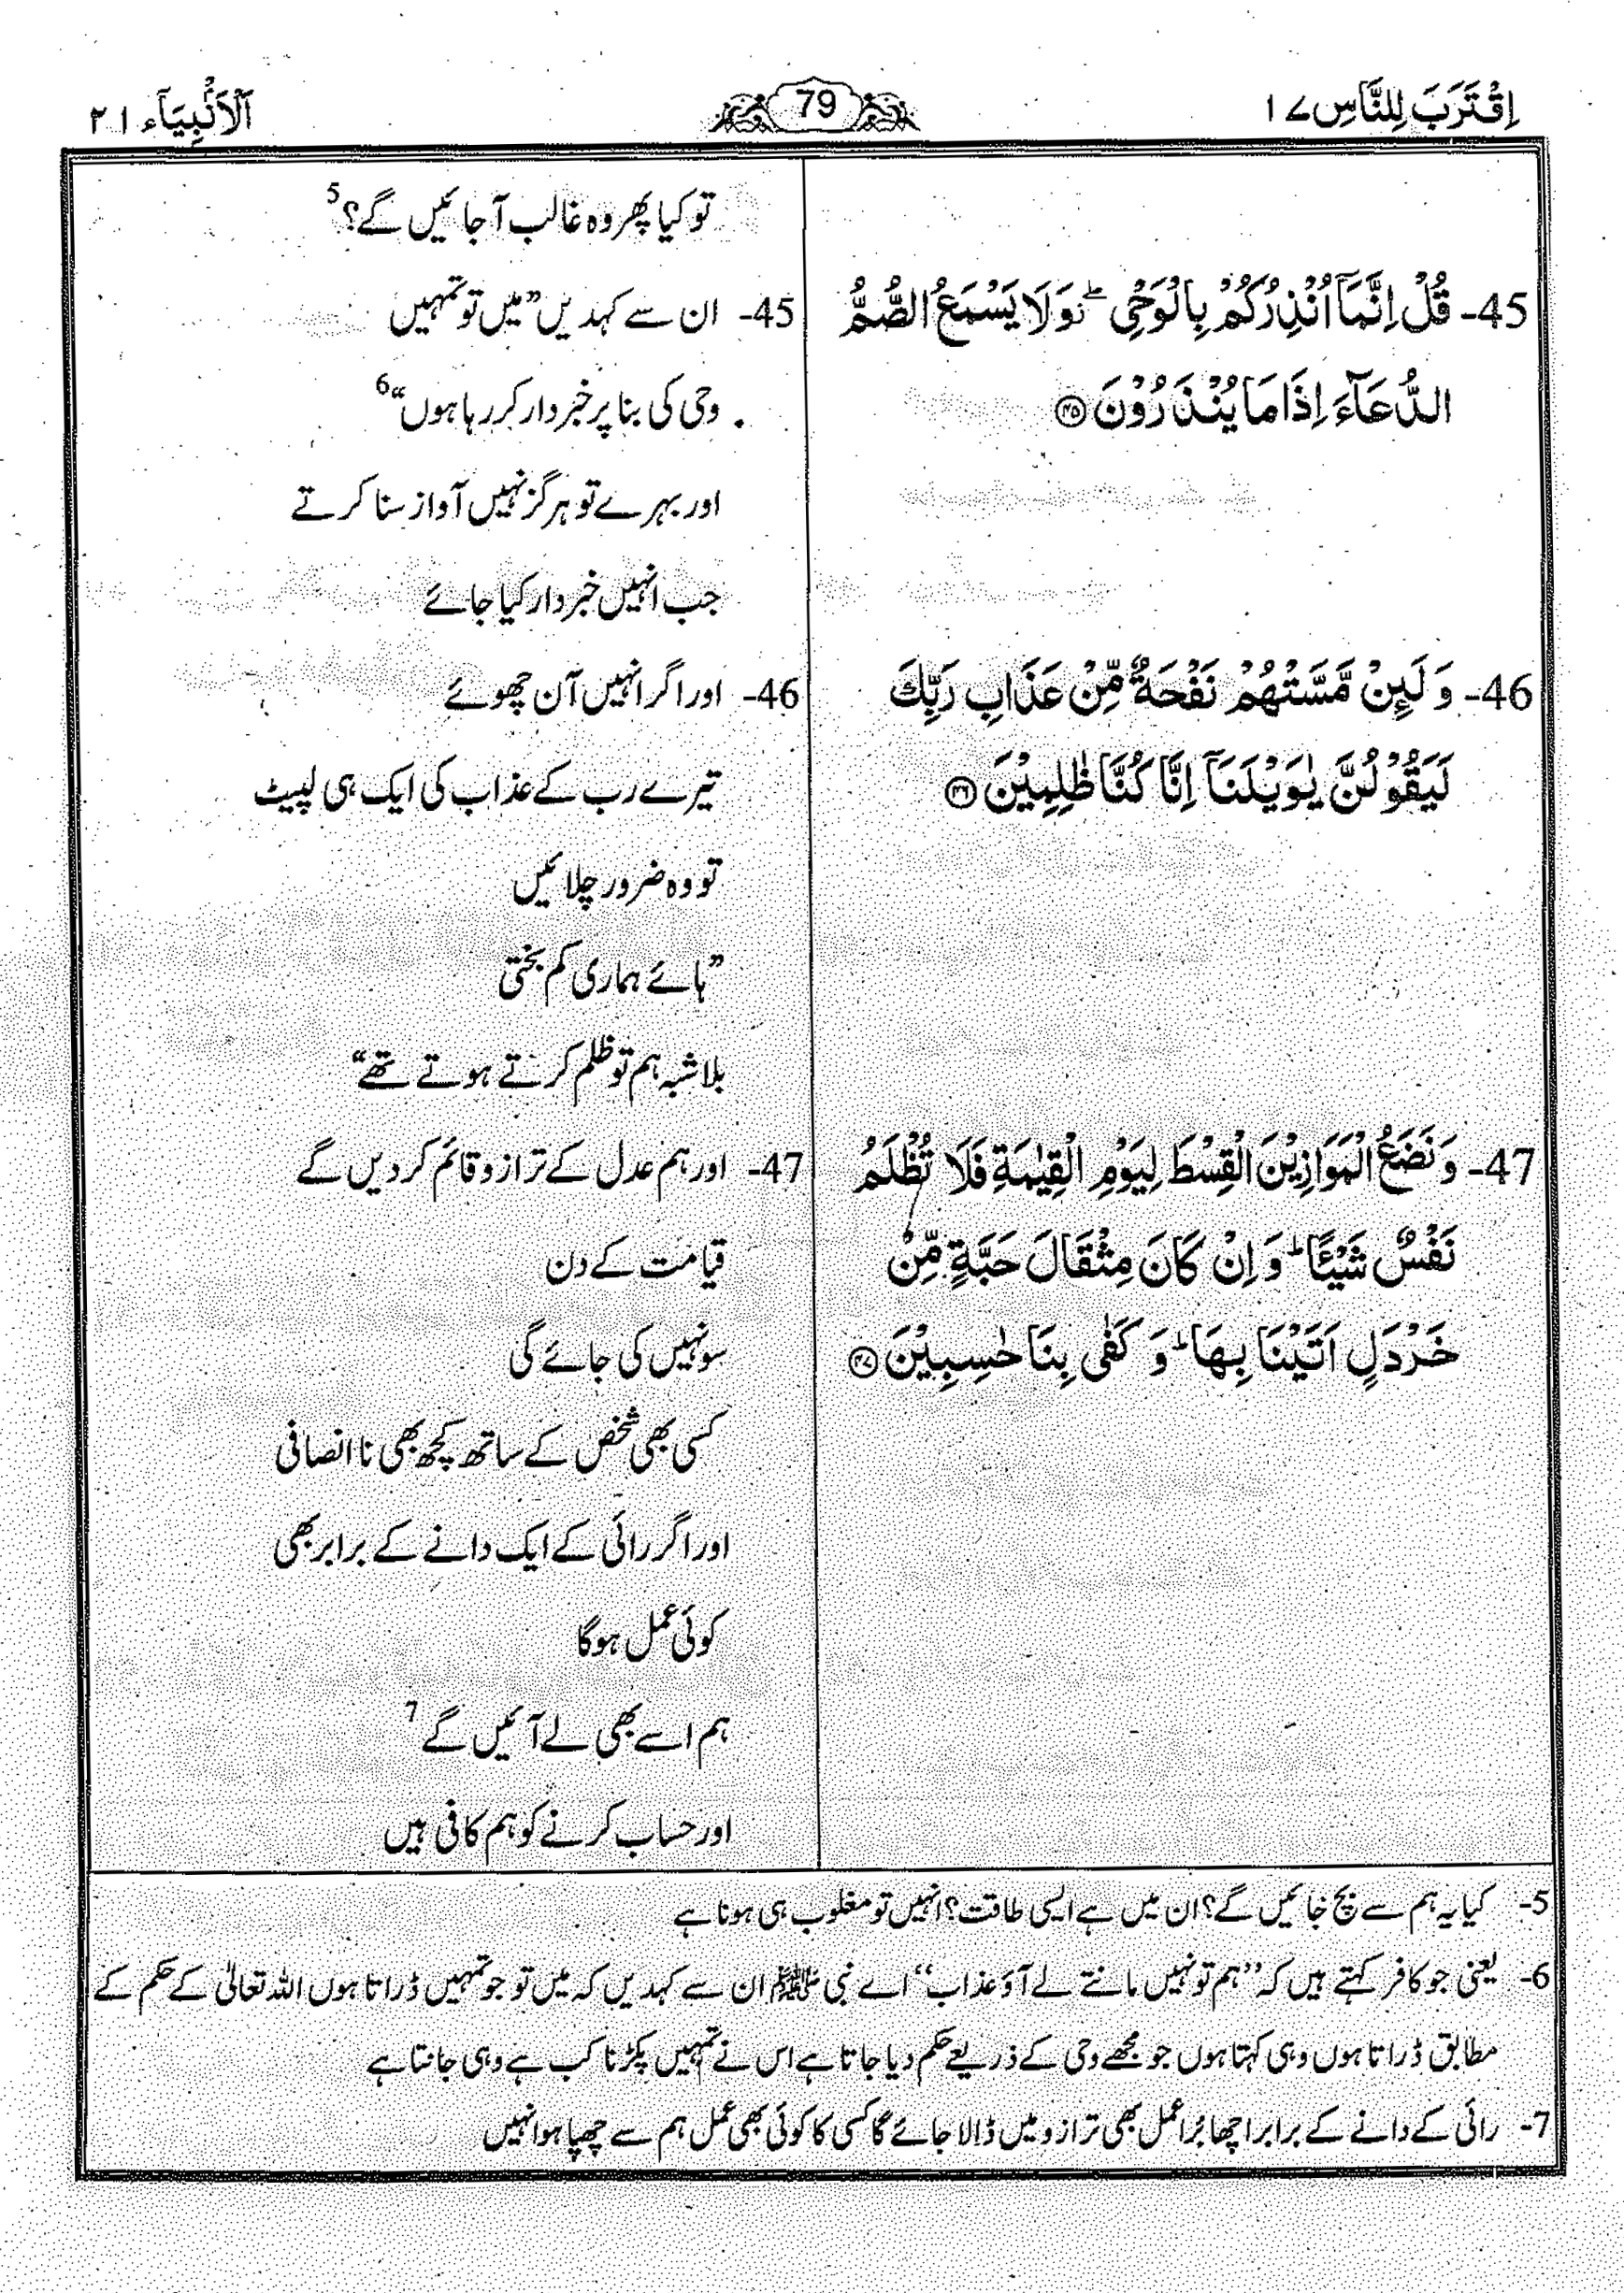 اِقْتَرَبَ لِلنَّاسِ ۱۷
79
اَلْاَنْۢبِيَآء ۲۱
تو کیا پھر وہ غالب آجائیں گے؟5
45- قُلْ اِنَّمَاۤ اُنْذِرُكُمْ بِالْوَحْيِ ۖ وَلَا يَسْمَعُ الصُّمُّ
الدُّعَآءَ اِذَا مَا يُنْذَرُوْنَ ۴۵
45- ان سے کہدیں ”میں تو تمہیں
وحی کی بنا پر خبردار کر رہا ہوں“6
اور بہرے تو ہرگز نہیں آواز سنا کرتے
جب انہیں خبردار کیا جائے
46- وَ لَئِنْ مَّسَّتْهُمْ نَفْحَةٌ مِّنْ عَذَابِ رَبِّكَ
لَيَقُوْلُنَّ يٰوَيْلَنَاۤ اِنَّا كُنَّا ظٰلِمِيْنَ ۴۶
46- اور اگر انہیں آن چھوئے
تیرے رب کے عذاب کی ایک ہی لپیٹ
تو وہ ضرور چلائیں
”ہائے ہماری کم بختی
بلاشبہ ہم تو ظلم کرتے ہوتے تھے“
47- وَ نَضَعُ الْمَوَازِيْنَ الْقِسْطَ لِيَوْمِ الْقِيٰمَةِ فَلَا تُظْلَمُ
نَفْسٌ شَيْئًا ؕ وَ اِنْ كَانَ مِثْقَالَ حَبَّةٍ مِّنْ
خَرْدَلٍ اَتَيْنَا بِهَا ؕ وَ كَفٰى بِنَا حٰسِبِيْنَ ۴۷
47- اور ہم عدل کے ترازو قائم کر دیں گے
قیامت کے دن
سو نہیں کی جائے گی
کسی بھی شخص کے ساتھ کچھ بھی ناانصافی
اور اگر رائی کے ایک دانے کے برابر بھی
کوئی عمل ہوگا
ہم اسے بھی لے آئیں گے7
اور حساب کرنے کو ہم کافی ہیں
5- کیا یہ ہم سے بچ جائیں گے؟ ان میں ہے ایسی طاقت؟ انہیں تو مغلوب ہی ہونا ہے
6- یعنی جو کافر کہتے ہیں کہ ’’ہم تو نہیں مانتے لے آؤ عذاب‘‘ اے نبی ﷺ ان سے کہدیں کہ میں تو جو تمہیں ڈراتا ہوں اللہ تعالیٰ کے حکم کے
مطابق ڈراتا ہوں وہی کہتا ہوں جو مجھے وحی کے ذریعے حکم دیا جاتا ہے اس نے تمہیں پکڑنا کب ہے وہی جانتا ہے
7- رائی کے دانے کے برابر اچھا بُرا عمل بھی ترازو میں ڈالا جائے گا کسی کا کوئی بھی عمل ہم سے چھپا ہوا نہیں